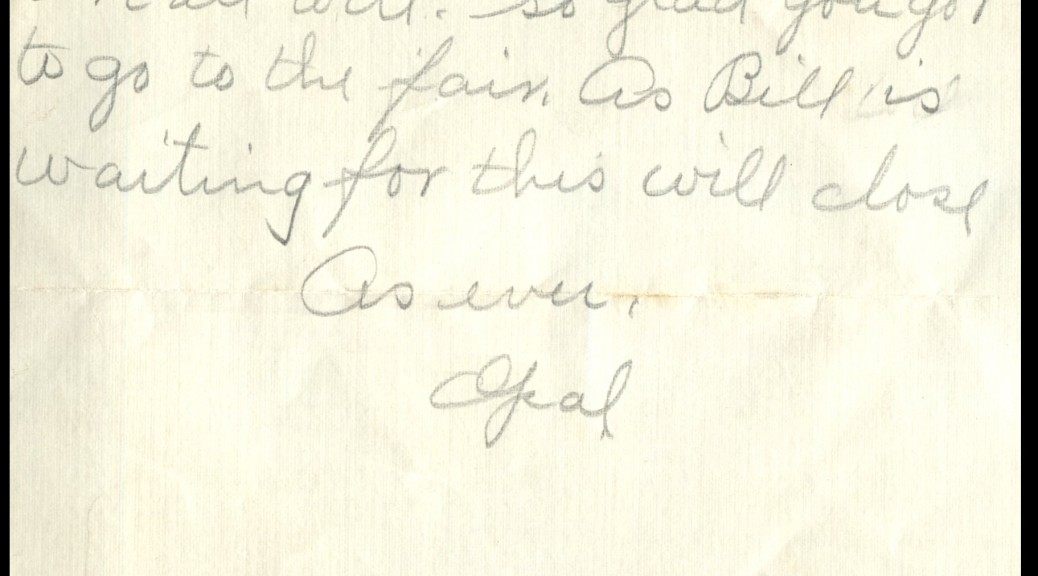 all well. So glad you got
to go to the fair. As Bill is
waiting for this will close
As ever,
Opal